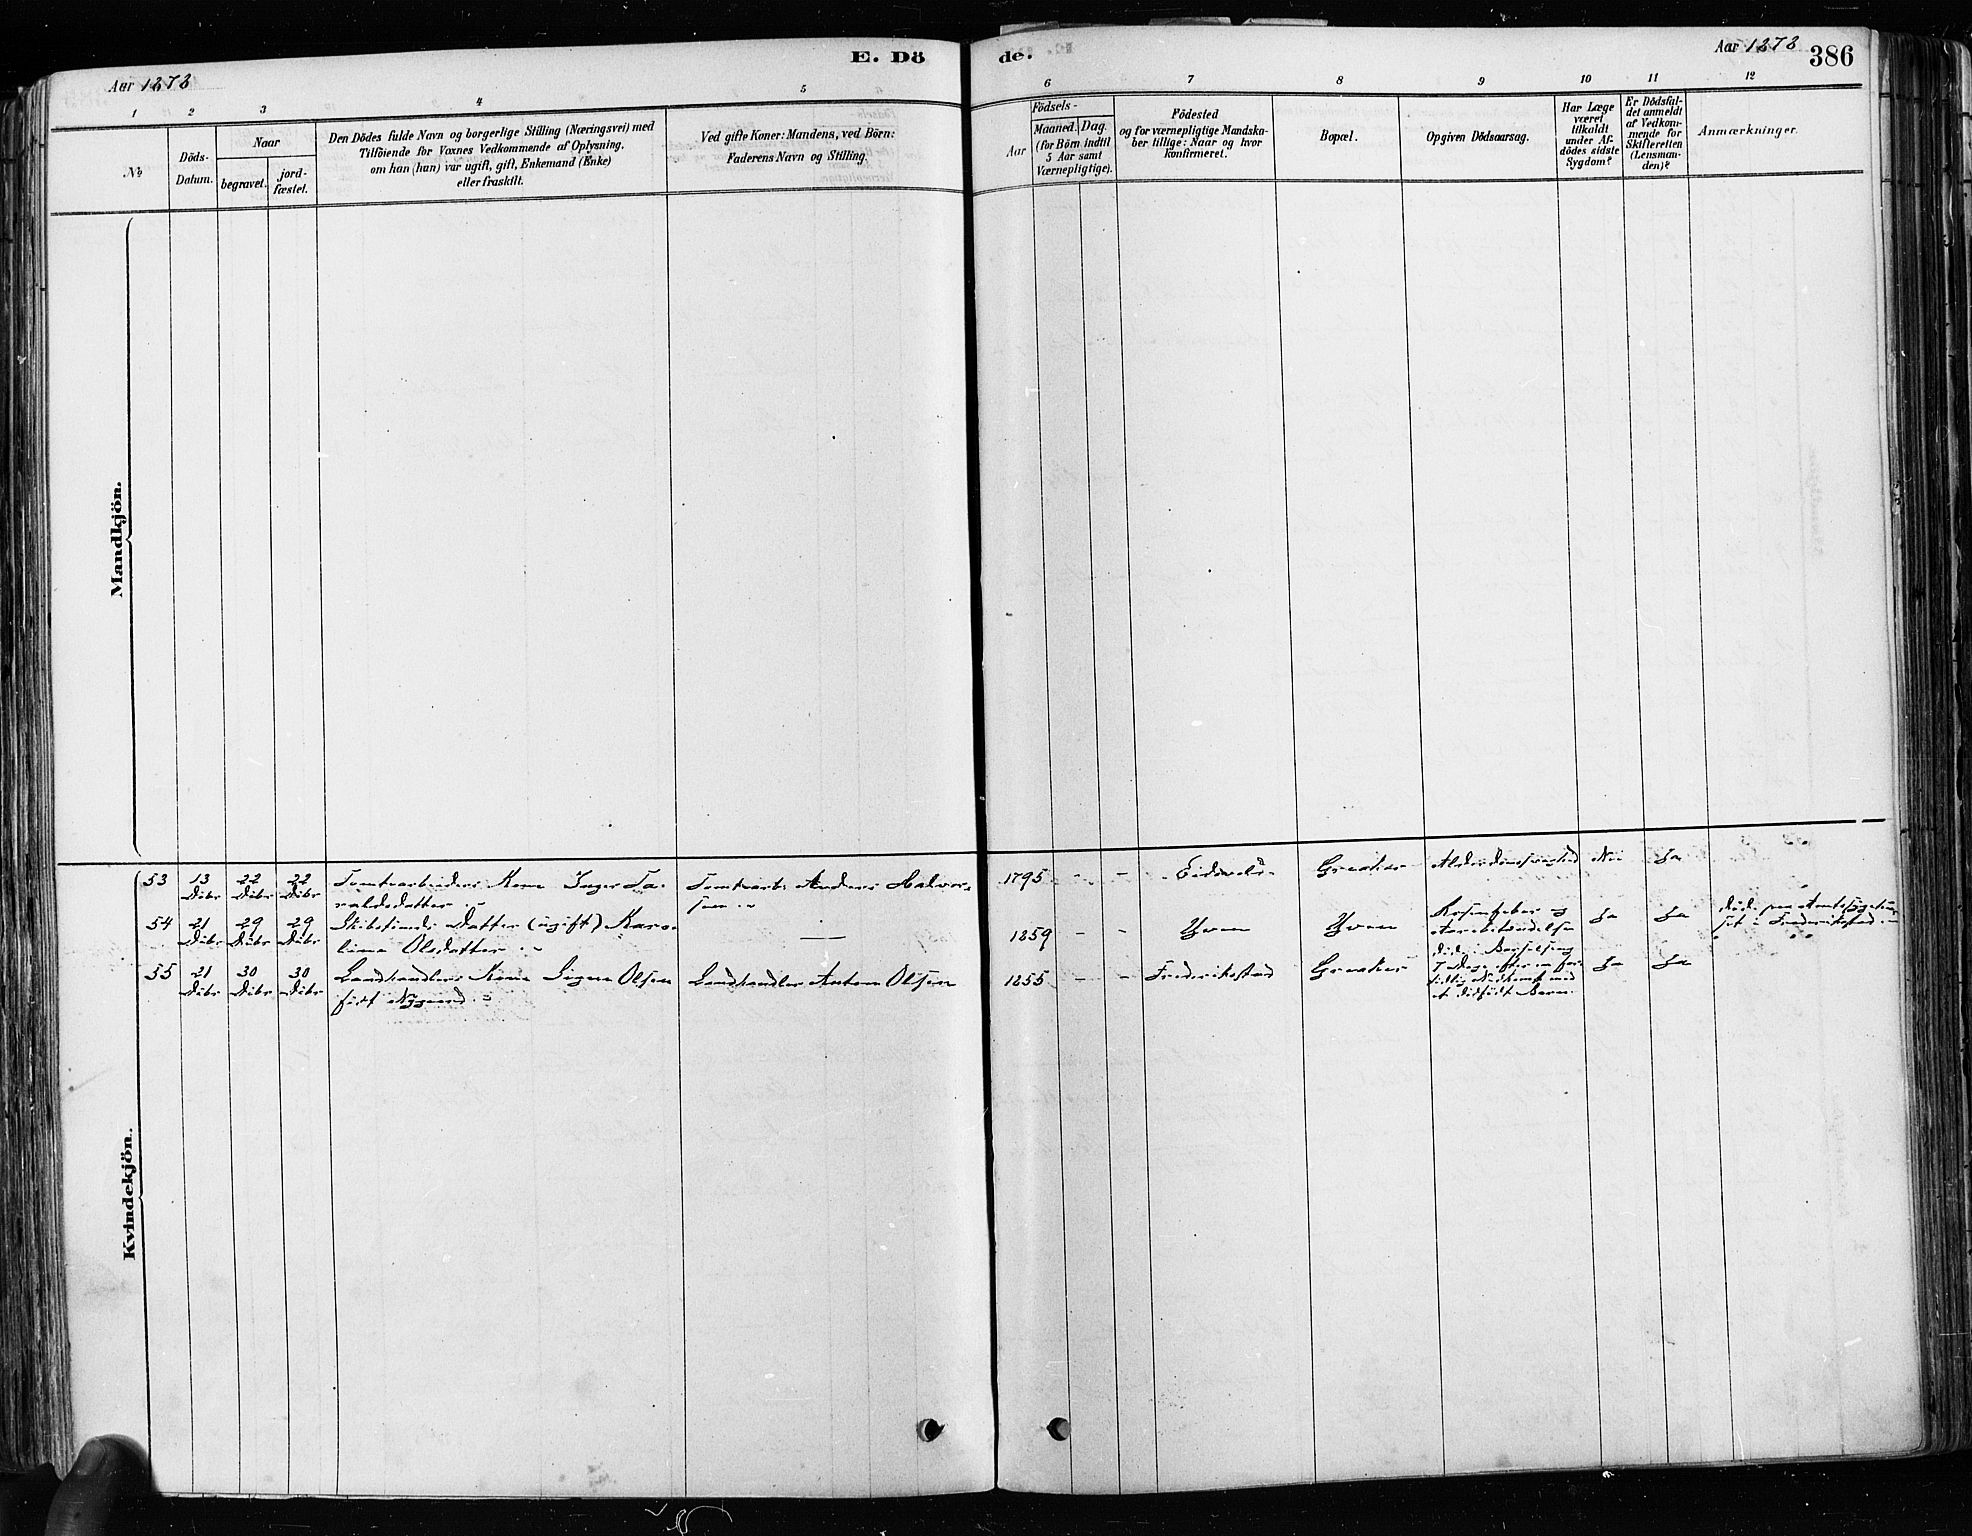 E. Dö
de.
386
Aar 1878
Aar 1878
1
2
3
4
5
6
7
8
9
10
11
12
№
Döds-
Datum.
Naar
begravet.
jord-
fæstet.
Den Dödes fulde Navn og borgerlige Stilling (Næringsvei) med
Tilföiende for Voxnes Vedkommende af Oplysning,
om han (hun) var ugift, gift, Enkemand (Enke)
eller fraskilt.
Ved gifte Koner: Mandens, ved Börn:
Faderens Navn og Stilling.
Födsels-
Aar
Maaned.
Dag.
(for Börn indtil
5 Aar samt
Værnepligtige).
Födested
og for værnepligtige Mandska-
ber tillige: Naar og hvor
konfirmeret.
Bopæl.
Opgiven Dödsaarsag.
Har Læge
været
tilkaldt
under Af-
dödes sidste
Sygdom?
Er Dödsfal-
det anmeldt
af Vedkom-
mende for
Skifteretten
(Lensman-
den)?
Anmærkninger.
Mandkjön.
Kvindekjön.
53
13
Dcbr
22
Dcbr
22
Dcbr
Tomtearbeiders Kone Inger Ta-
raldsdatter
Tomtearb. Anders Halvor-
sen
1795
-
-
Eidsvold
Greaker
Alderdomssvaghed
Nei
Ja
54
21
Dcbr
29
Dcbr
29
Dcbr
Datter (ugift) Karo-
line Olsdatter
—
1859
-
-
Yven
Yven
Rosenfeber og
Ja
Ja
Död paa Amtssygehu-
set i Frederikstad
55
21
Dcbr
30
Dcbr
30
Dcbr
Landhandlers Kone Signe Olsen
født Nygaard
Landhandler Anton Olsen
1855
-
-
Frederikstad
Greaker
Död i Barselseng
7 Dage efter en for-
tidlig Nedkomst med
et dödfödt Barn.
Ja
Ja